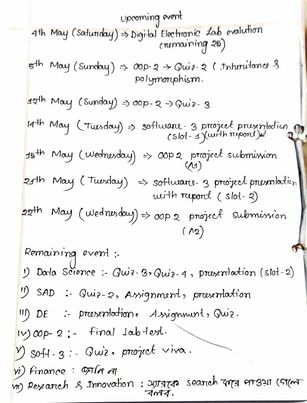 Upcoming event
4th May (Saturday) ⇒ Digital Electronic Lab evalution
(remaining 25)
5th May (Sunday) ⇒ OOP-2 → Quiz-2 (Inheritance &
polymorphism.
12th May (Sunday) ⇒ OOP-2 → Quiz-3
14th May (Tuesday) ⇒ software-3 project presentation
(slot-1) (with report)
15th May (Wednesday) ⇒ OOP2 project submission
(A1)
21th May (Tuesday) ⇒ software-3 project presentation
with report (slot-2)
22th May (Wednesday) ⇒ OOP2 project submission
(A2)
Remaining event :-
i) Data Science :- Quiz-3, Quiz-4, presentation (slot-2)
ii) SAD :- Quiz-2, Assignment, presentation
iii) DE :- presentation, Assignment, Quiz.
iv) OOP-2 :- final lab test.
v) Soft-3 :- Quiz, project viva.
vi) Finance : জানি না
vii) Research & Innovation : স্যারকে search করে পাওয়া গেলে
বলব.